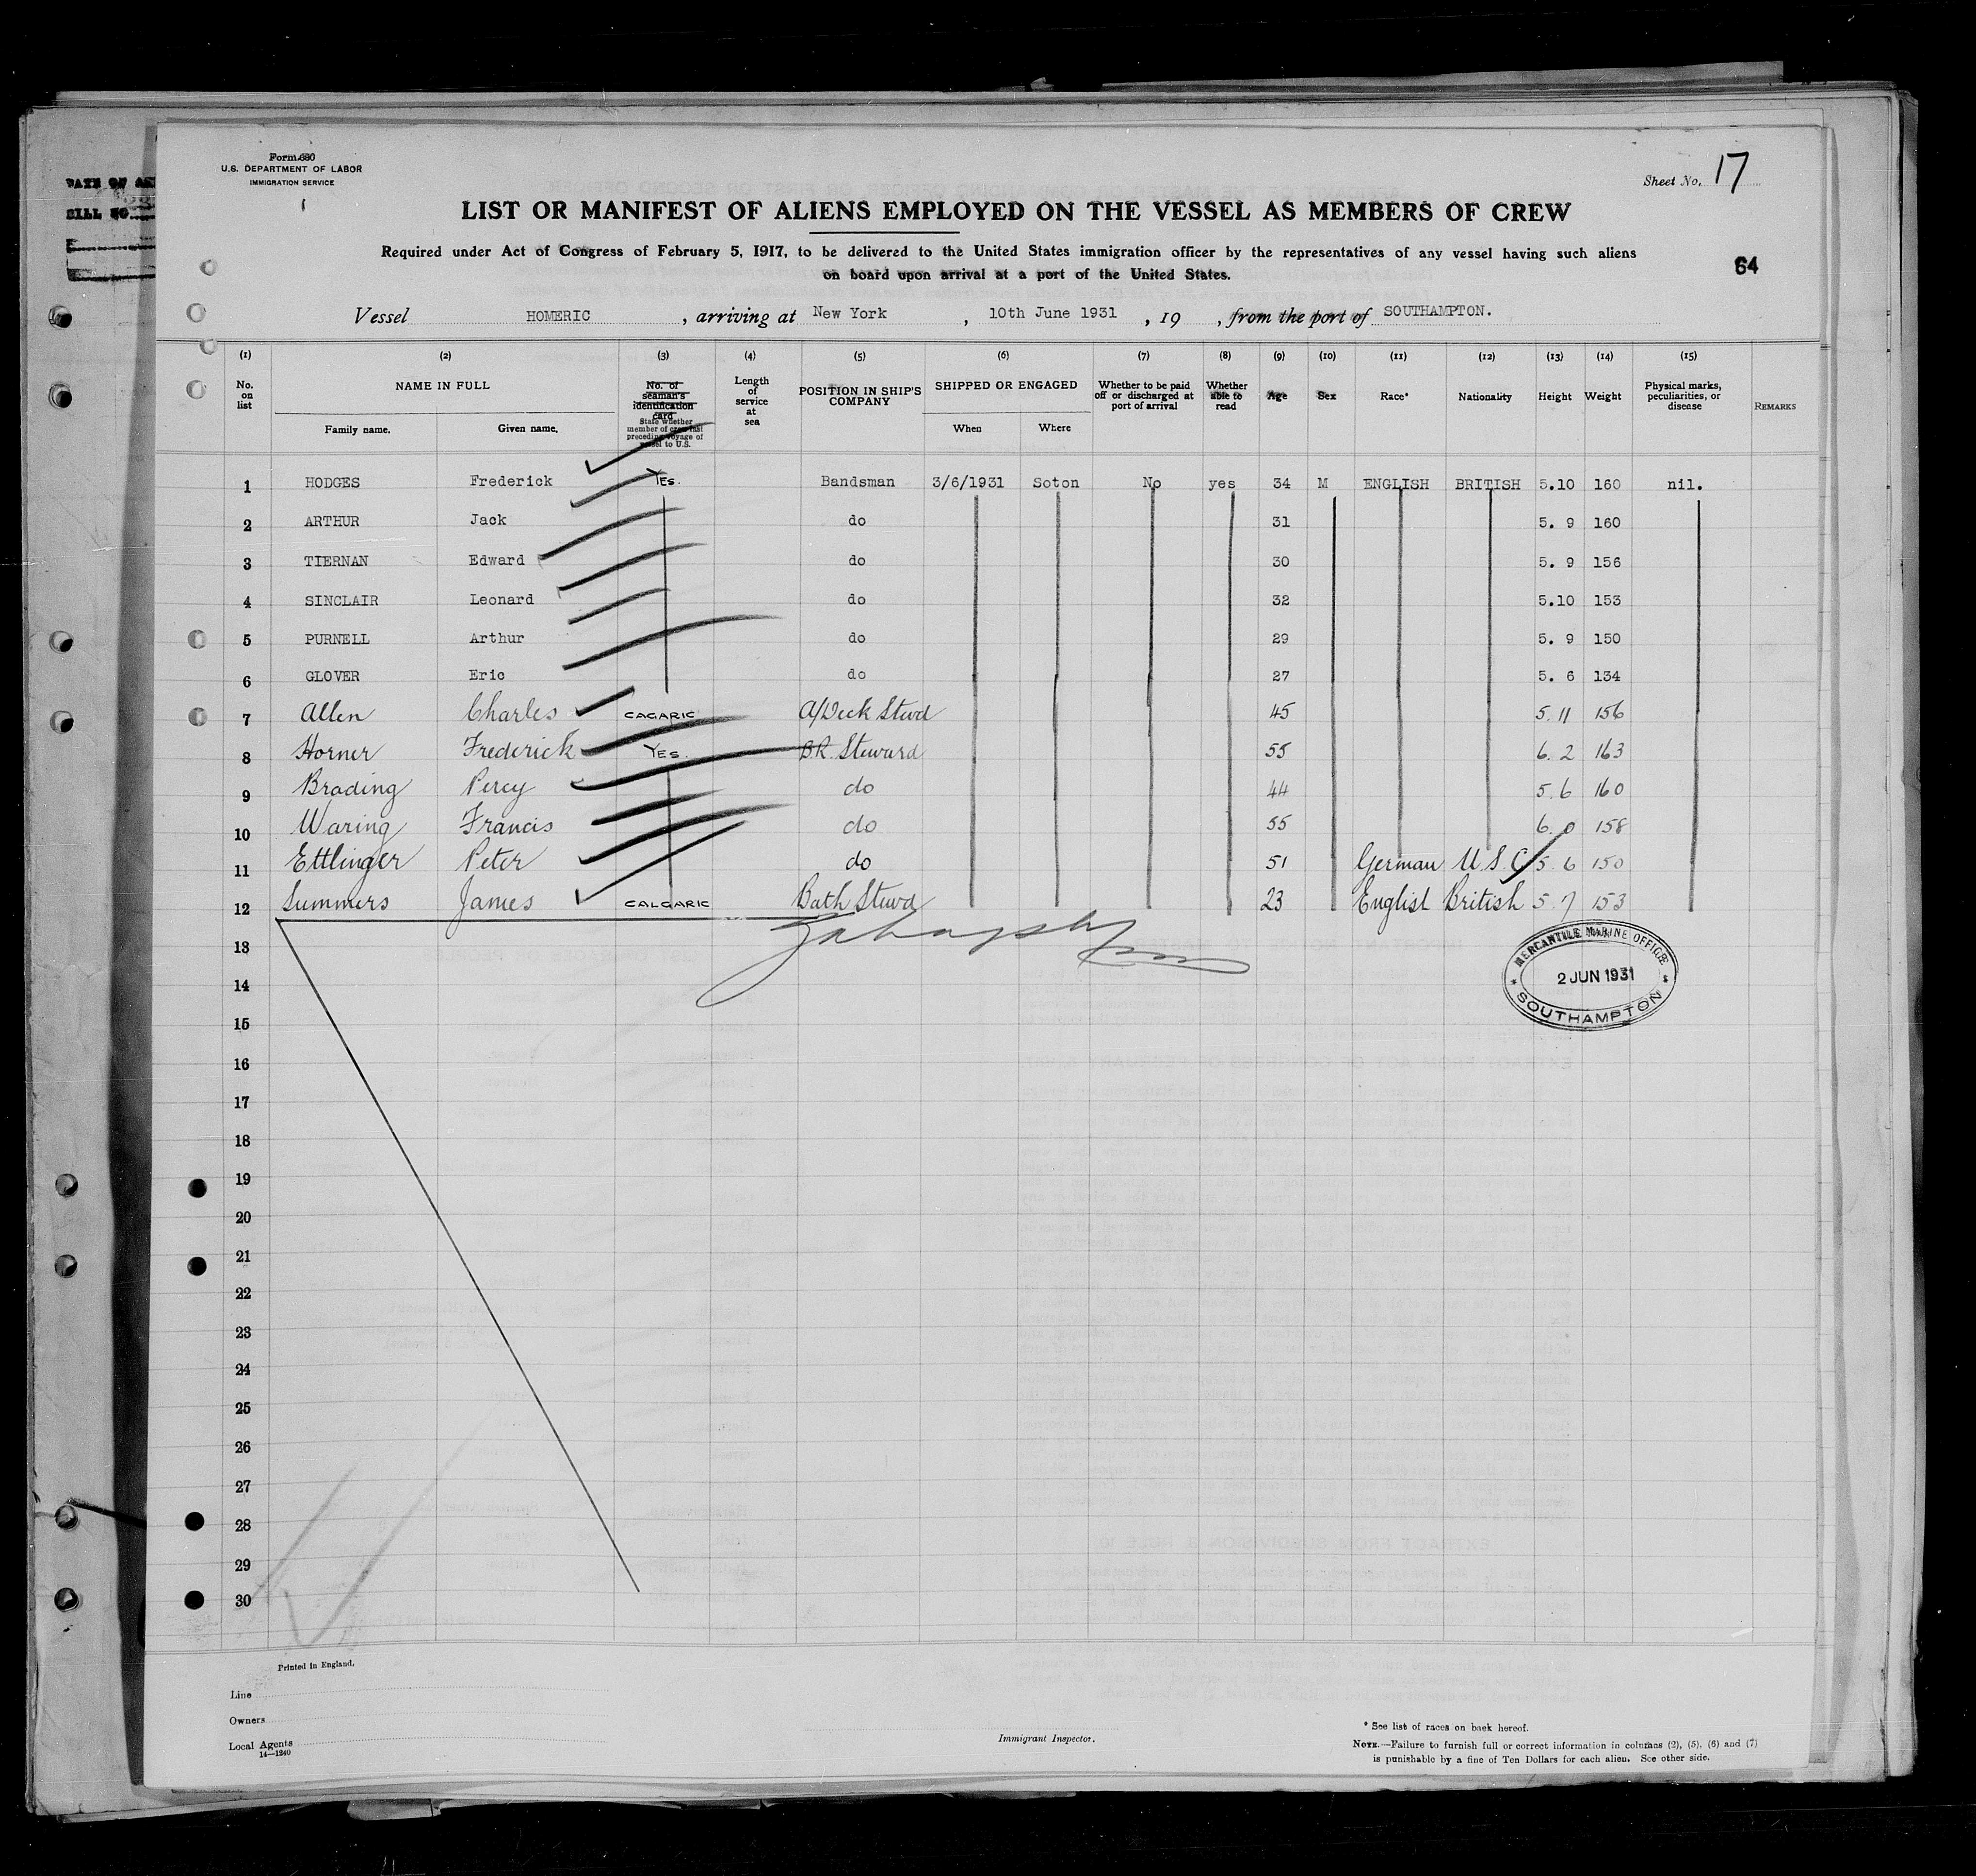 Form 680
U.S. DEPARTMENT OF LABOR
IMMIGRATION SERVICE
Sheet No. 17
LIST OR MANIFEST OF ALIENS EMPLOYED ON THE VESSEL AS MEMBERS OF CREW
Required under Act of Congress of February 5, 1917, to be delivered to the United States immigration officer by the representatives of any vessel having such aliens
on board upon arrival at a port of the United States.
64
Vessel HOMERIC, arriving at New York, 10th June 1931, 19 , from the port of SOUTHAMPTON.
(1) (2) (3) (4) (5) (6) (7) (8) (9) (10) (11) (12) (13) (14) (15)
No. on list
NAME IN FULL
Family name. Given name.
No. of seaman's identification card
State whether member of crew last preceding voyage of vessel to U.S.
Length of service at sea
POSITION IN SHIP'S COMPANY
SHIPPED OR ENGAGED
When Where
Whether to be paid off or discharged at port of arrival
Whether able to read
Age
Sex
Race*
Nationality
Height
Weight
Physical marks, peculiarities, or disease
REMARKS
1 HODGES Frederick YES. Bandsman 3/6/1931 Soton No yes 34 M ENGLISH BRITISH 5.10 160 nil.
2 ARTHUR Jack do 31 5. 9 160
3 TIERNAN Edward do 30 5. 9 156
4 SINCLAIR Leonard do 32 5.10 153
5 PURNELL Arthur do 29 5. 9 150
6 GLOVER Eric do 27 5. 6 134
7 Allen Charles CAGARIC A/Deck Stewd 45 5. 11 156
8 Horner Frederick YES. B.R. Steward 55 6. 2 163
9 Brading Percy do 44 5. 6 160
10 Waring Francis do 55 6. 0 158
11 Ettlinger Peter do 51 German U.S.C 5. 6 150
12 Summers James CALGARIC Bath Stewd 23 English British 5. 7 153
MERCANTILE MARINE OFFICE
2 JUN 1931
SOUTHAMPTON
13
14
15
16
17
18
19
20
21
22
23
24
25
26
27
28
29
30
Printed in England.
Line
Owners
Local Agents
14—1240
Immigrant Inspector.
* See list of races on back hereof.
NOTE.—Failure to furnish full or correct information in columns (2), (5), (6) and (7)
is punishable by a fine of Ten Dollars for each alien. See other side.